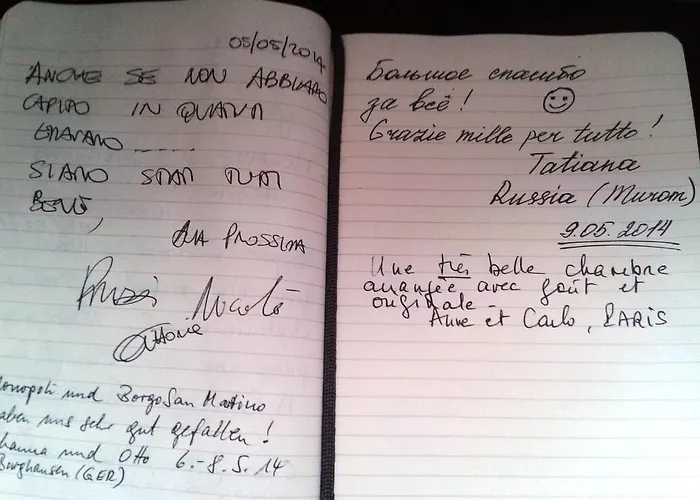 05/05/2014
ANCHE SE NON ABBIAMO
CAPITO IN QUANTI
ERAVAMO ......
SIAMO STATI TUTTI
BENE,
ALLA PROSSIMA
Nicolò
onopoli und Borgo San Martino
aben uns sehr gut gefallen!
hanna und Otto 6.-8.5.14
Burghausen (GER)
Большое спасибо
за всё! ☺
Grazie mille per tutto!
Tatiana
Russia (Murom)
9.05.2014
Une très belle chambre
arrangée avec goût et
originale -
Anne et Carlo, PARIS